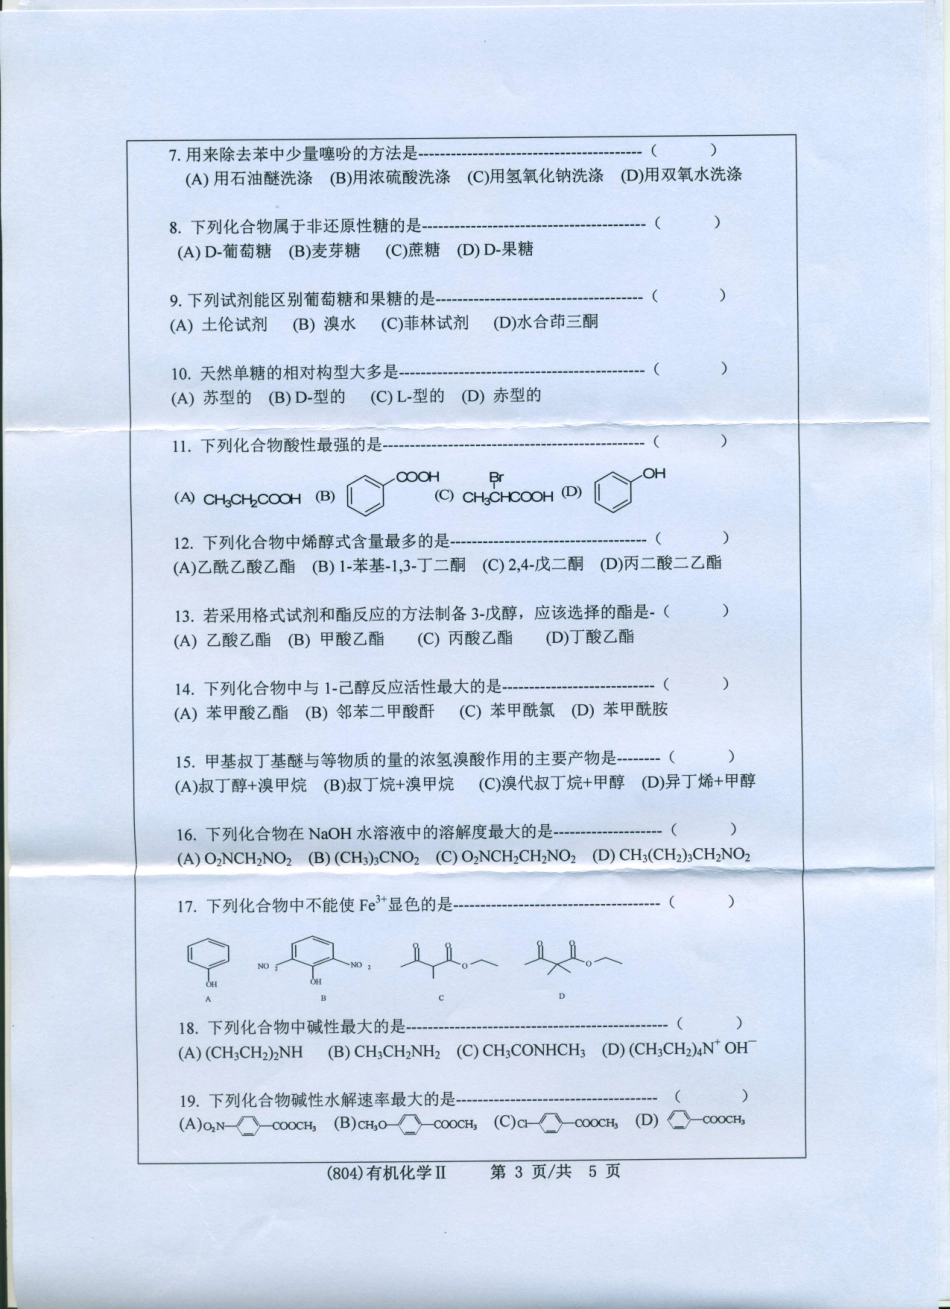 7. 用来除去苯中少量噻吩的方法是----------------------------------------- (      )
(A) 用石油醚洗涤 (B)用浓硫酸洗涤 (C)用氢氧化钠洗涤 (D)用双氧水洗涤
8. 下列化合物属于非还原性糖的是----------------------------------------- (      )
(A) D-葡萄糖 (B)麦芽糖 (C)蔗糖 (D) D-果糖
9. 下列试剂能区别葡萄糖和果糖的是-------------------------------------- (      )
(A) 土伦试剂 (B) 溴水 (C)菲林试剂 (D)水合茚三酮
10. 天然单糖的相对构型大多是--------------------------------------------- (      )
(A) 苏型的 (B) D-型的 (C) L-型的 (D) 赤型的
11. 下列化合物酸性最强的是------------------------------------------------ (      )
COOH Br OH
(A) CH3CH2COOH (B) (C) CH3CHCOOH (D)
12. 下列化合物中烯醇式含量最多的是------------------------------------ (      )
(A)乙酰乙酸乙酯 (B) 1-苯基-1,3-丁二酮 (C) 2,4-戊二酮 (D)丙二酸二乙酯
13. 若采用格式试剂和酯反应的方法制备 3-戊醇，应该选择的酯是- (      )
(A) 乙酸乙酯 (B) 甲酸乙酯 (C) 丙酸乙酯 (D)丁酸乙酯
14. 下列化合物中与 1-己醇反应活性最大的是---------------------------- (      )
(A) 苯甲酸乙酯 (B) 邻苯二甲酸酐 (C) 苯甲酰氯 (D) 苯甲酰胺
15. 甲基叔丁基醚与等物质的量的浓氢溴酸作用的主要产物是-------- (      )
(A)叔丁醇+溴甲烷 (B)叔丁烷+溴甲烷 (C)溴代叔丁烷+甲醇 (D)异丁烯+甲醇
16. 下列化合物在 NaOH 水溶液中的溶解度最大的是-------------------- (      )
(A) O2NCH2NO2 (B) (CH3)3CNO2 (C) O2NCH2CH2NO2 (D) CH3(CH2)3CH2NO2
17. 下列化合物中不能使 Fe3+显色的是-------------------------------------- (      )
O O O O
NO2 NO2 O O
OH OH
A B C D
18. 下列化合物中碱性最大的是------------------------------------------------ (      )
(A) (CH3CH2)2NH (B) CH3CH2NH2 (C) CH3CONHCH3 (D) (CH3CH2)4N+ OH−
19. 下列化合物碱性水解速率最大的是------------------------------------- (      )
(A)O2N COOCH3 (B)CH3O COOCH3 (C)Cl COOCH3 (D) COOCH3
(804)有机化学Ⅱ 第 3 页/共 5 页